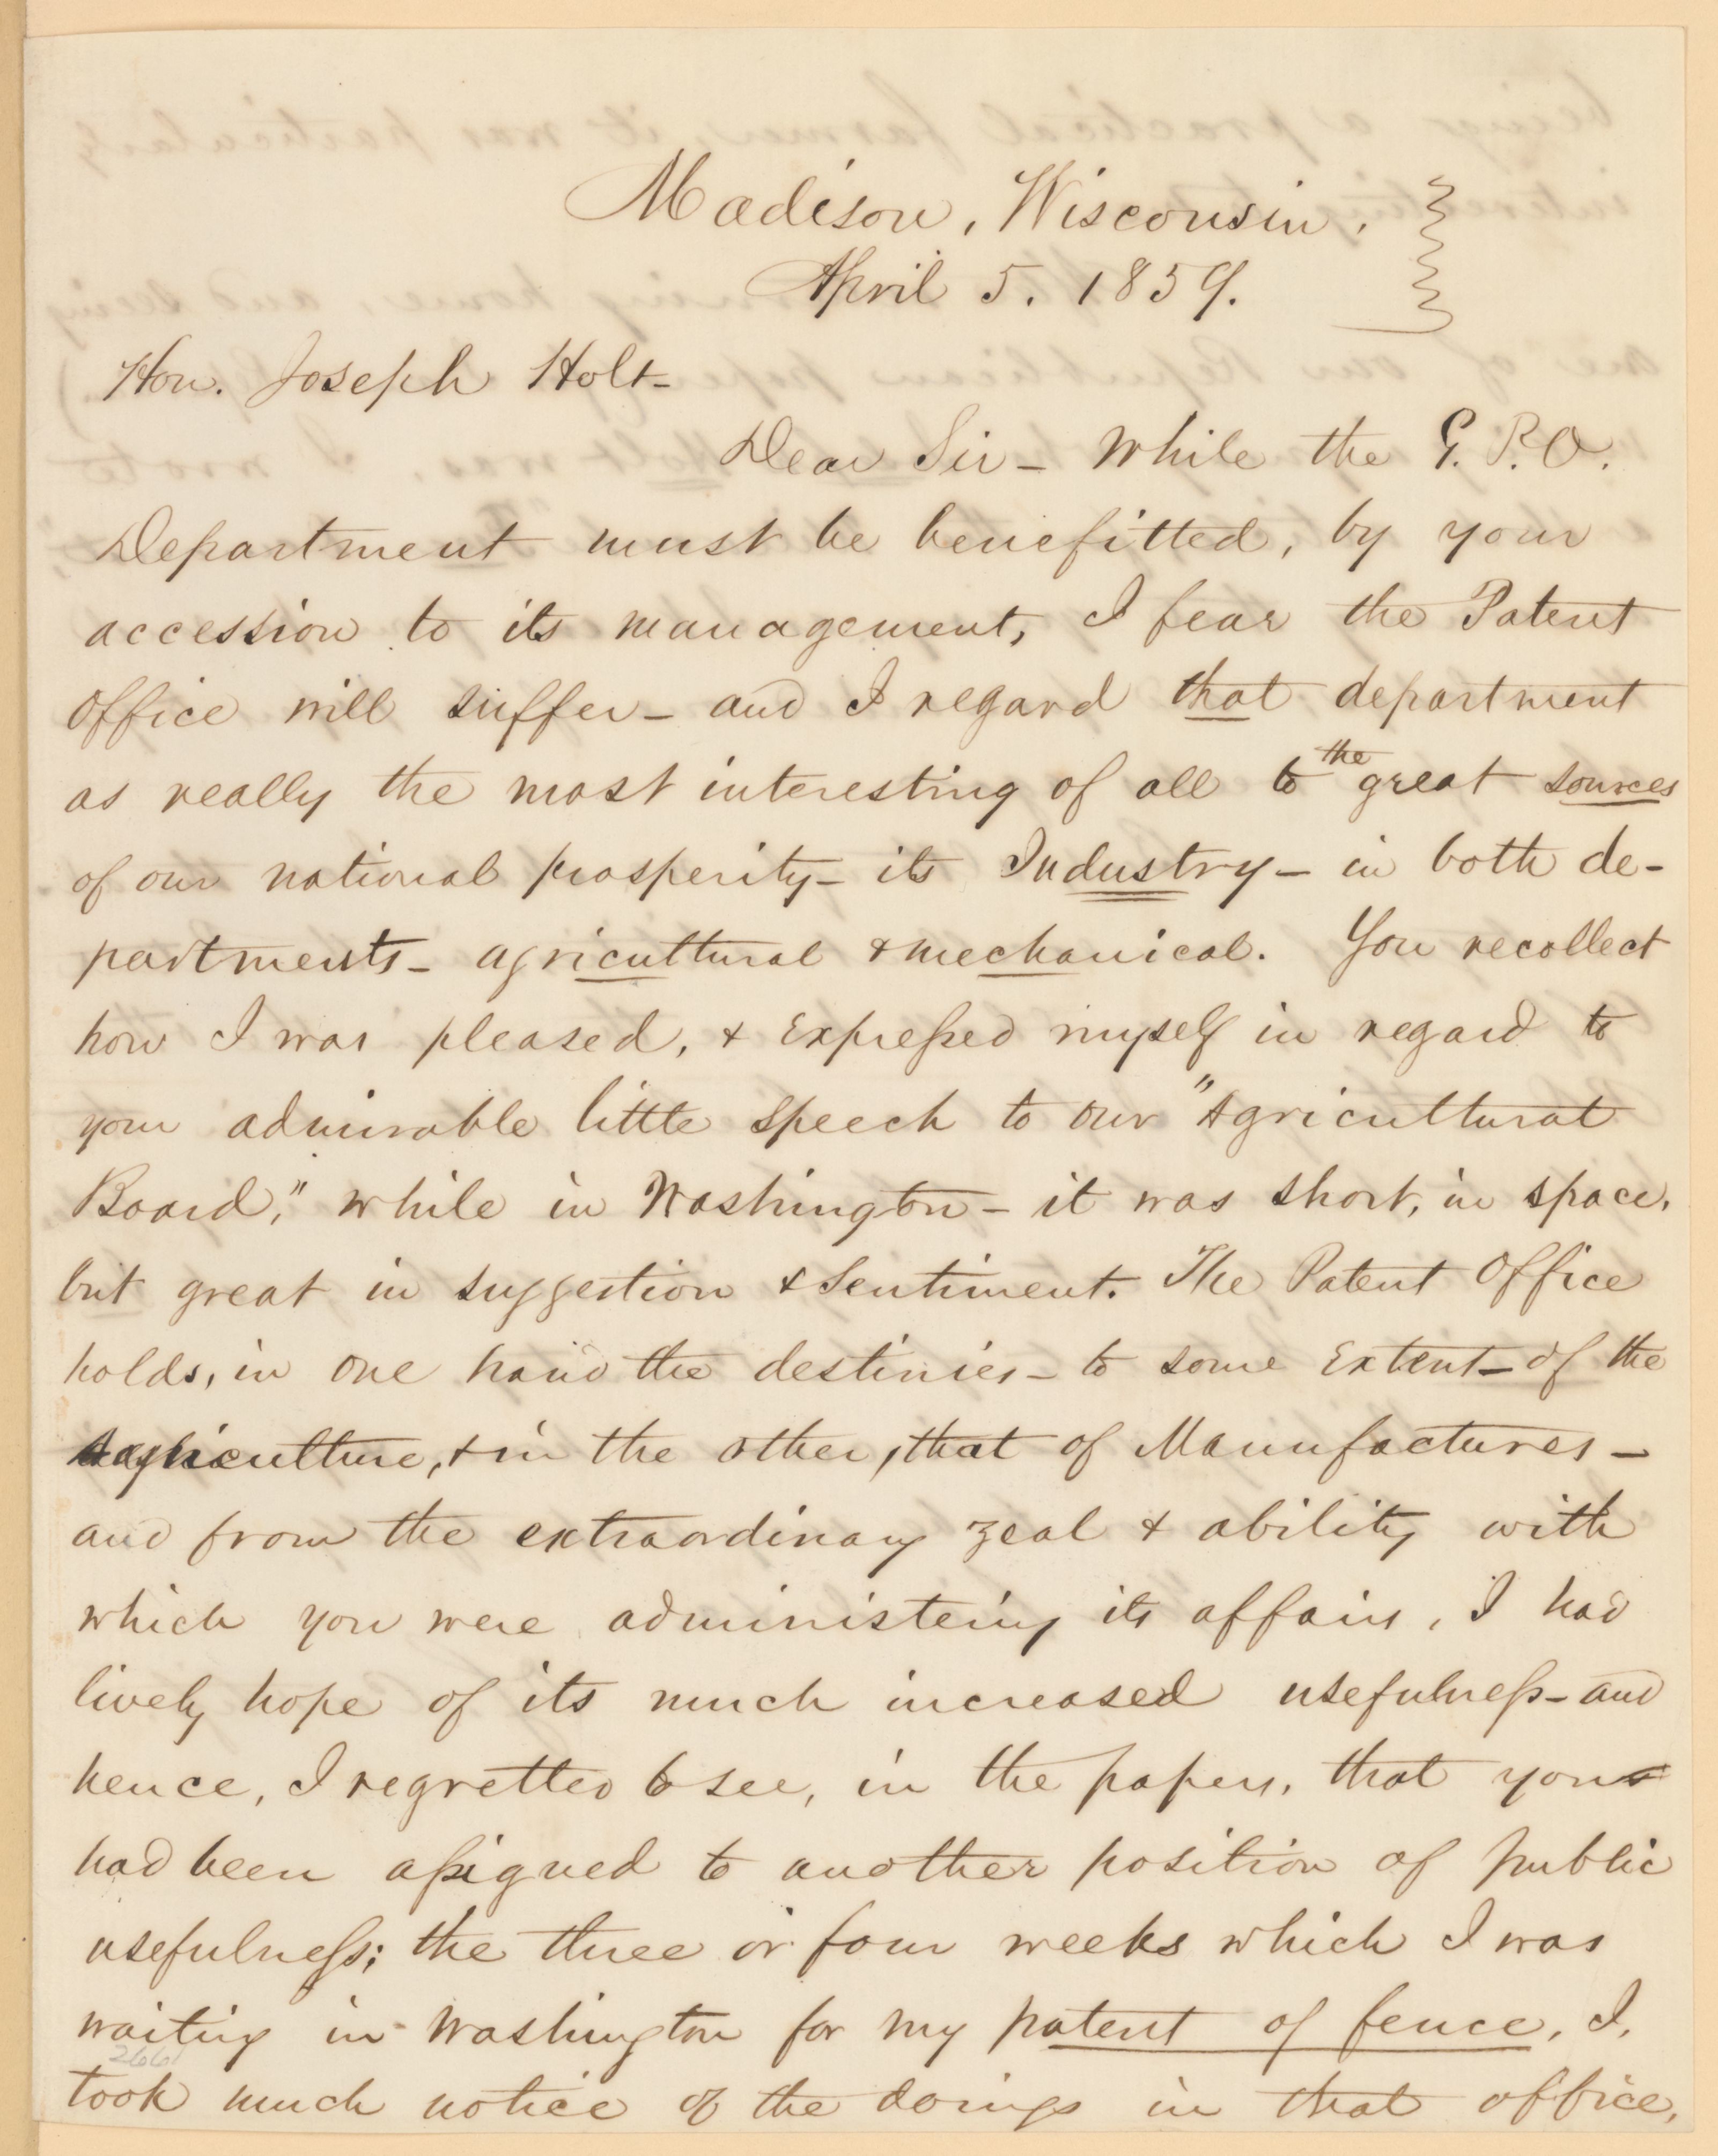 Madison, Wisconsin.
April 5. 1859.
Hon. Joseph Holt-
Dear Sir- While the G.P.O.
Department must be benefitted, by your
accession to its management, I fear the Patent
Office will suffer- and I regard that department
as really the most interesting of all to the great sources
of our national prosperity- its Industry- in both de-
partments- agricultural & mechanical. You recollect
how I was pleased, & expressed myself in regard to
your admirable little speech to our "Agricultural
Board," while in Washington- it was short, in space,
but great in suggestion & sentiment. The Patent Office
holds, in one hand the destinies- to some extent- of the
agriculture, & in the other, that of Manufactures-
and from the extraordinary zeal & ability with
which you were administering its affairs, I had
lively hope of its much increased usefulness- and
hence, I regretted to see, in the papers, that you
had been assigned to another position of public
usefulness; the three or four weeks which I was
waiting in Washington for my patent of fence, I,
2661
took much notice of the doings in that office,